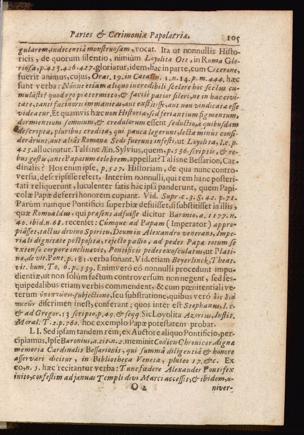 Partes & Cerimoniæ Papolatriæ. 105
gularem, indecentiâ monstruosam, vocat. Ita ut nonnullis Histo-
ricis, de quorum silentio, nimium Loyolita Ott, in Roma Glo-
riosa, p. 425. 426. 427. gloriatur, idem hac in parte, cum Cicerone,
fuerit animus, cujus, Orat. 19. in Catalin. 1. n. 14. p. m. 444. hæc
sunt verba: Nónne etiam alio incredibili scelere hoc scelus cu-
mulasti? quod ego prætermitto, & facilè patior sileri, ne in hac civi-
tate, tanti facinoris immanitas aut extitisse, aut non vindicata esse
videatur. Et quamvis hæc
dormientium somnium, & credulorum essent seductio, à quibusdam
descripta, pluribus credita, qui pauca legerunt, lecta minùs consi-
derârunt, aut alias Romana Sedi fuerunt infensi, ut Loyolita, l.c. p.
427. allucinatur. Talis ne Æn. Sylvius, quem, p. 536. scriptis, & re-
bus gestis, ante Papatum celebrem, appellat? Talis ne Bessarion, Car-
dinalis? Hoc enim ipse, p. 527. Historiam, de qua nunc contro-
versia, descripsisse refert. Interim nonnulli, qui rem hanc posteri-
tati reliquerunt, luculenter satis hac ipsâ panderunt, quem Papi-
colæ Papæ deferri honorem cupiant. Vid. Supr. c. 3. §. 42. p. 72.
Parùm namque Pontificis superbiæ defuisset, si substitisset in illis;
quæ Romualdus, qui præsens adfuisse dicitur Baronio, a. 1177. n.
20. ibid. n. 68. recenset: Cúmque ad Papam (Imperator) appro-
piásset, tactus divino Spiritu, Deum in Alexandro venerans, Impe-
riali dignitate postpositâ, rejecto pallio, ad pedes Papæ totum se
extenso corpore inclinavit, Pontificis pedes exosculatus, ut Plati-
na, de vit. Pont. p. 181. verba sonant. Vid. etiam Beyerlinck, Theatr.
vit. hum. To. 6. p. 539. Enimvero eò nonnulli procedunt impu-
dentiæ, ut non solùm factum controversum non negent, sed ses-
quipedalibus etiam verbis commendent, & cum pœnitentiali ve-
terum
crimen inusti, conferant; quos inter est Stephanus, l. c.
& ad Gregor. 13 script. p. 49. & seqq. Sic Loyolita Azorius, Instit.
Moral. T. 2. p. 760. hoc exemplo Papæ potestatem probat.
LI. Sed ipsam tandem rem, ex Auctore aliquo Pontificio, per-
cipiamus, Ipse Baronius, a. 210. n. 2. meminit Codicu Chronicor. digna
memoria Cardinalis Bessarionis, qui summâ diligentiâ & honore
asservari dicitur, in Bibliotheca Veneta, pluteo 17. &c. Ex
eo, n. 5. hæc recitantur verba: Tunc fundere Alexander Pontifex
inito, confestim ad januas Templi divi Marci accessit, & ibidem, u-
O 2 niver-